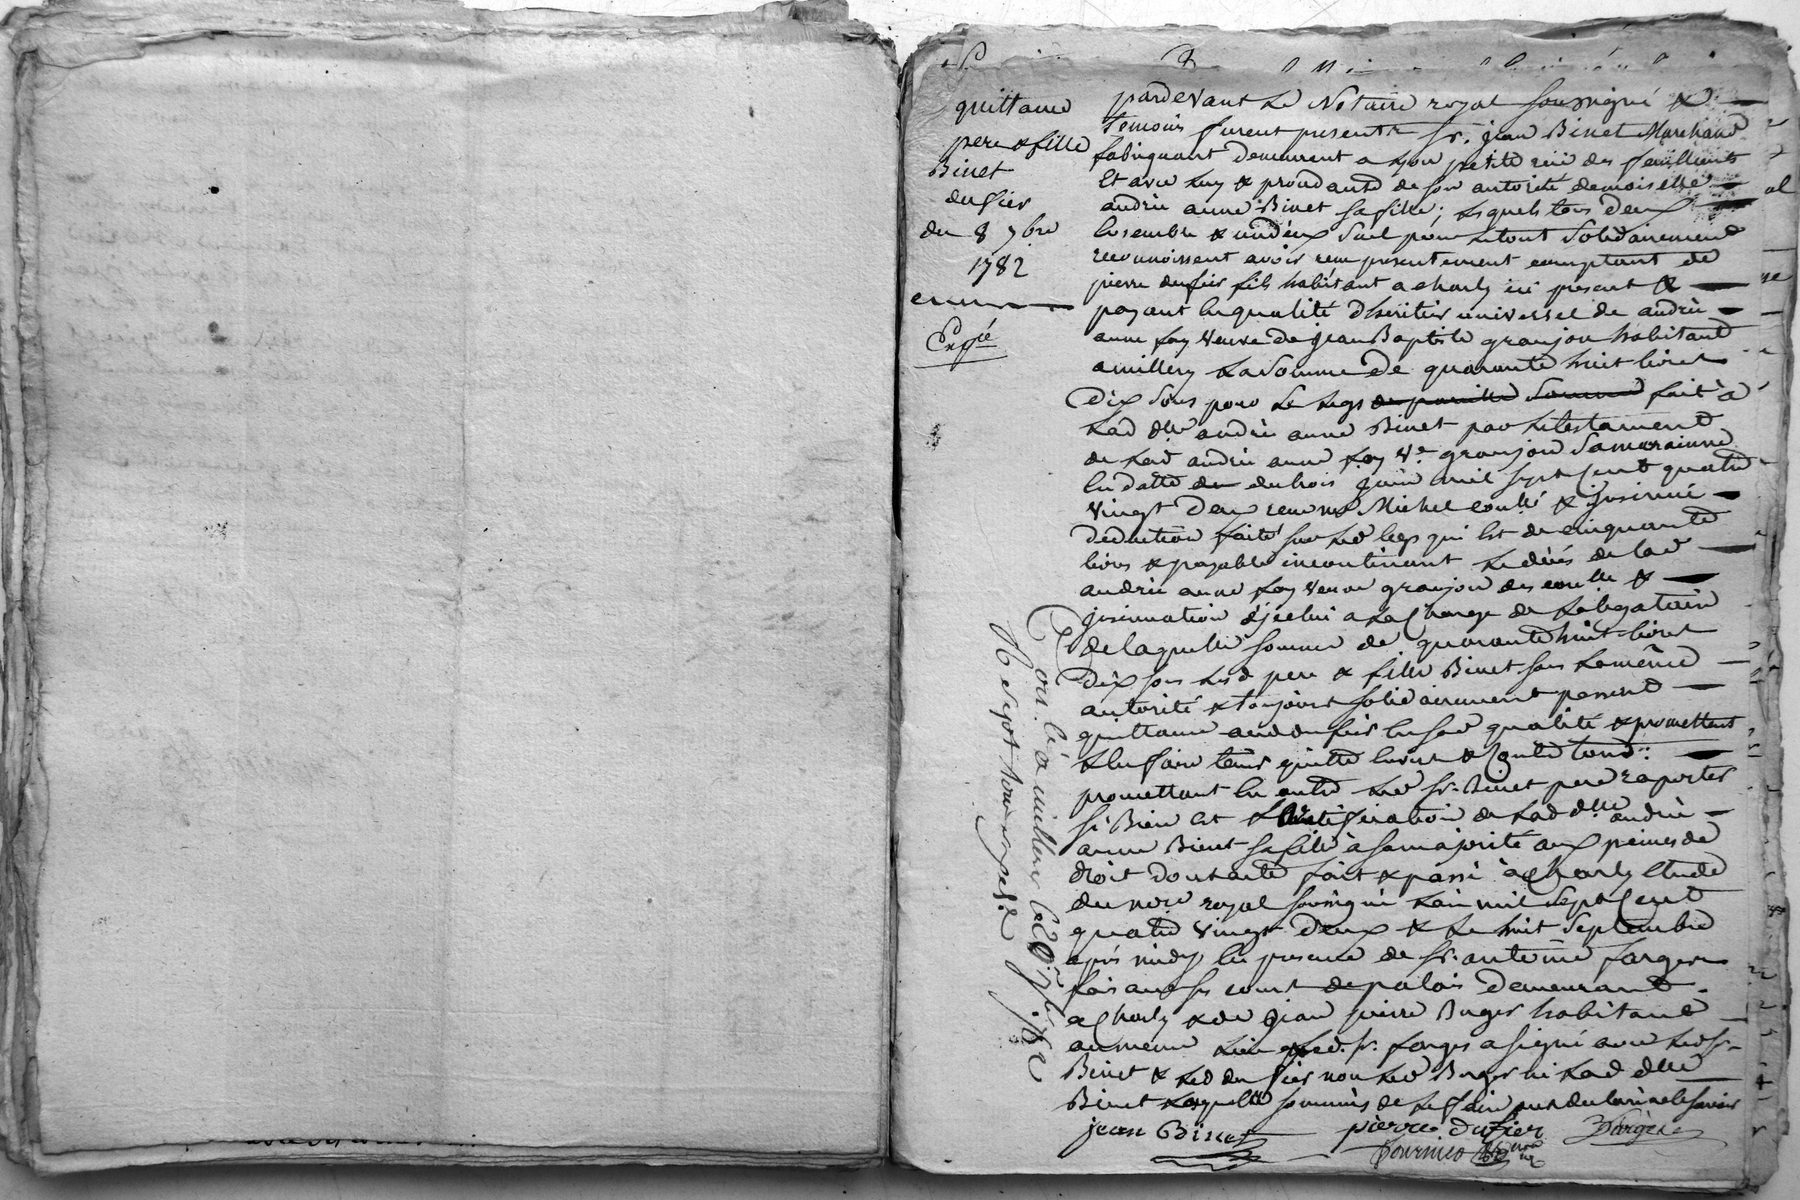 quittance
pere & fille
Binet
dufier
du 8 7bre
1782
Expé
pardevant Le Notaire royal soussigné &
temoins furent presents sr. jean Binet Marchand
fabriquant demeurant a Lyon petite ruë des feuillients
Et avec luy & procedante de son autorité demoiselle
andrée anne Binet sa fille; Lesquels tous deux
Ensemble & un d'eux seul pour Le tout solidairement
reconnoissent avoir recu presentement comptant de
pierre dufier fils habitant a charly ici present &
payant En qualité d'heritier universel de andrée
anne Loy veuve de jean Baptiste granjon habitant
a millery La somme De quarante huit livres
Dix sous pour Le Legs de pareille somme fait à
Lad dlle andrée anne Binet par Le testament
de Lad andrée anne Loy ve granjon sa marainne
En datte du trois juin mil sept Cent quatre
vingt Deux recu me Michel conllé & jnsinué
Déduction faite sur Led legs qui Est de cinquante
livres & payable incontinant Le décés de lad
andrée anne Loy veuve granjon des &
jnsinuation d'jcelui a La Charge de La légataire
de laquelle somme de quarante huit livres
Dix sous Lesd pere & fille Binet sous La même
autorité & toujours solidairement passent
quittance aud dufier En sad qualité & promettent
L'En faire tenir quitte Envers & Contre tous:
promettant En outre Led sr. Binet pere raporter
si Bien Est Ratification de Lad dlle andrée
anne Binet sa fille à sa majorité aux peines de
droit Dont acte fait & passé à Charly Etude
du nore royal soussigné L'an mil sept Cent
quatre vingt Deux & Le huit septembre
aprés midy En presence de sr. antoine farges
faisant ses cours de palais Demeurant
a Charly & de jean pierre Burges habitant
au même Lieu Led. sr. farges a signé avec Led sr.
Binet & Led dufier non Led Burges ni Lad dlle
Binet Laquelle sommés de Le faire ont declaré ne le savoir
jean Binet
pierre dufier
fargese
fournier nore
Con.lé a millery Le 20 7bre 1782
R sept sous